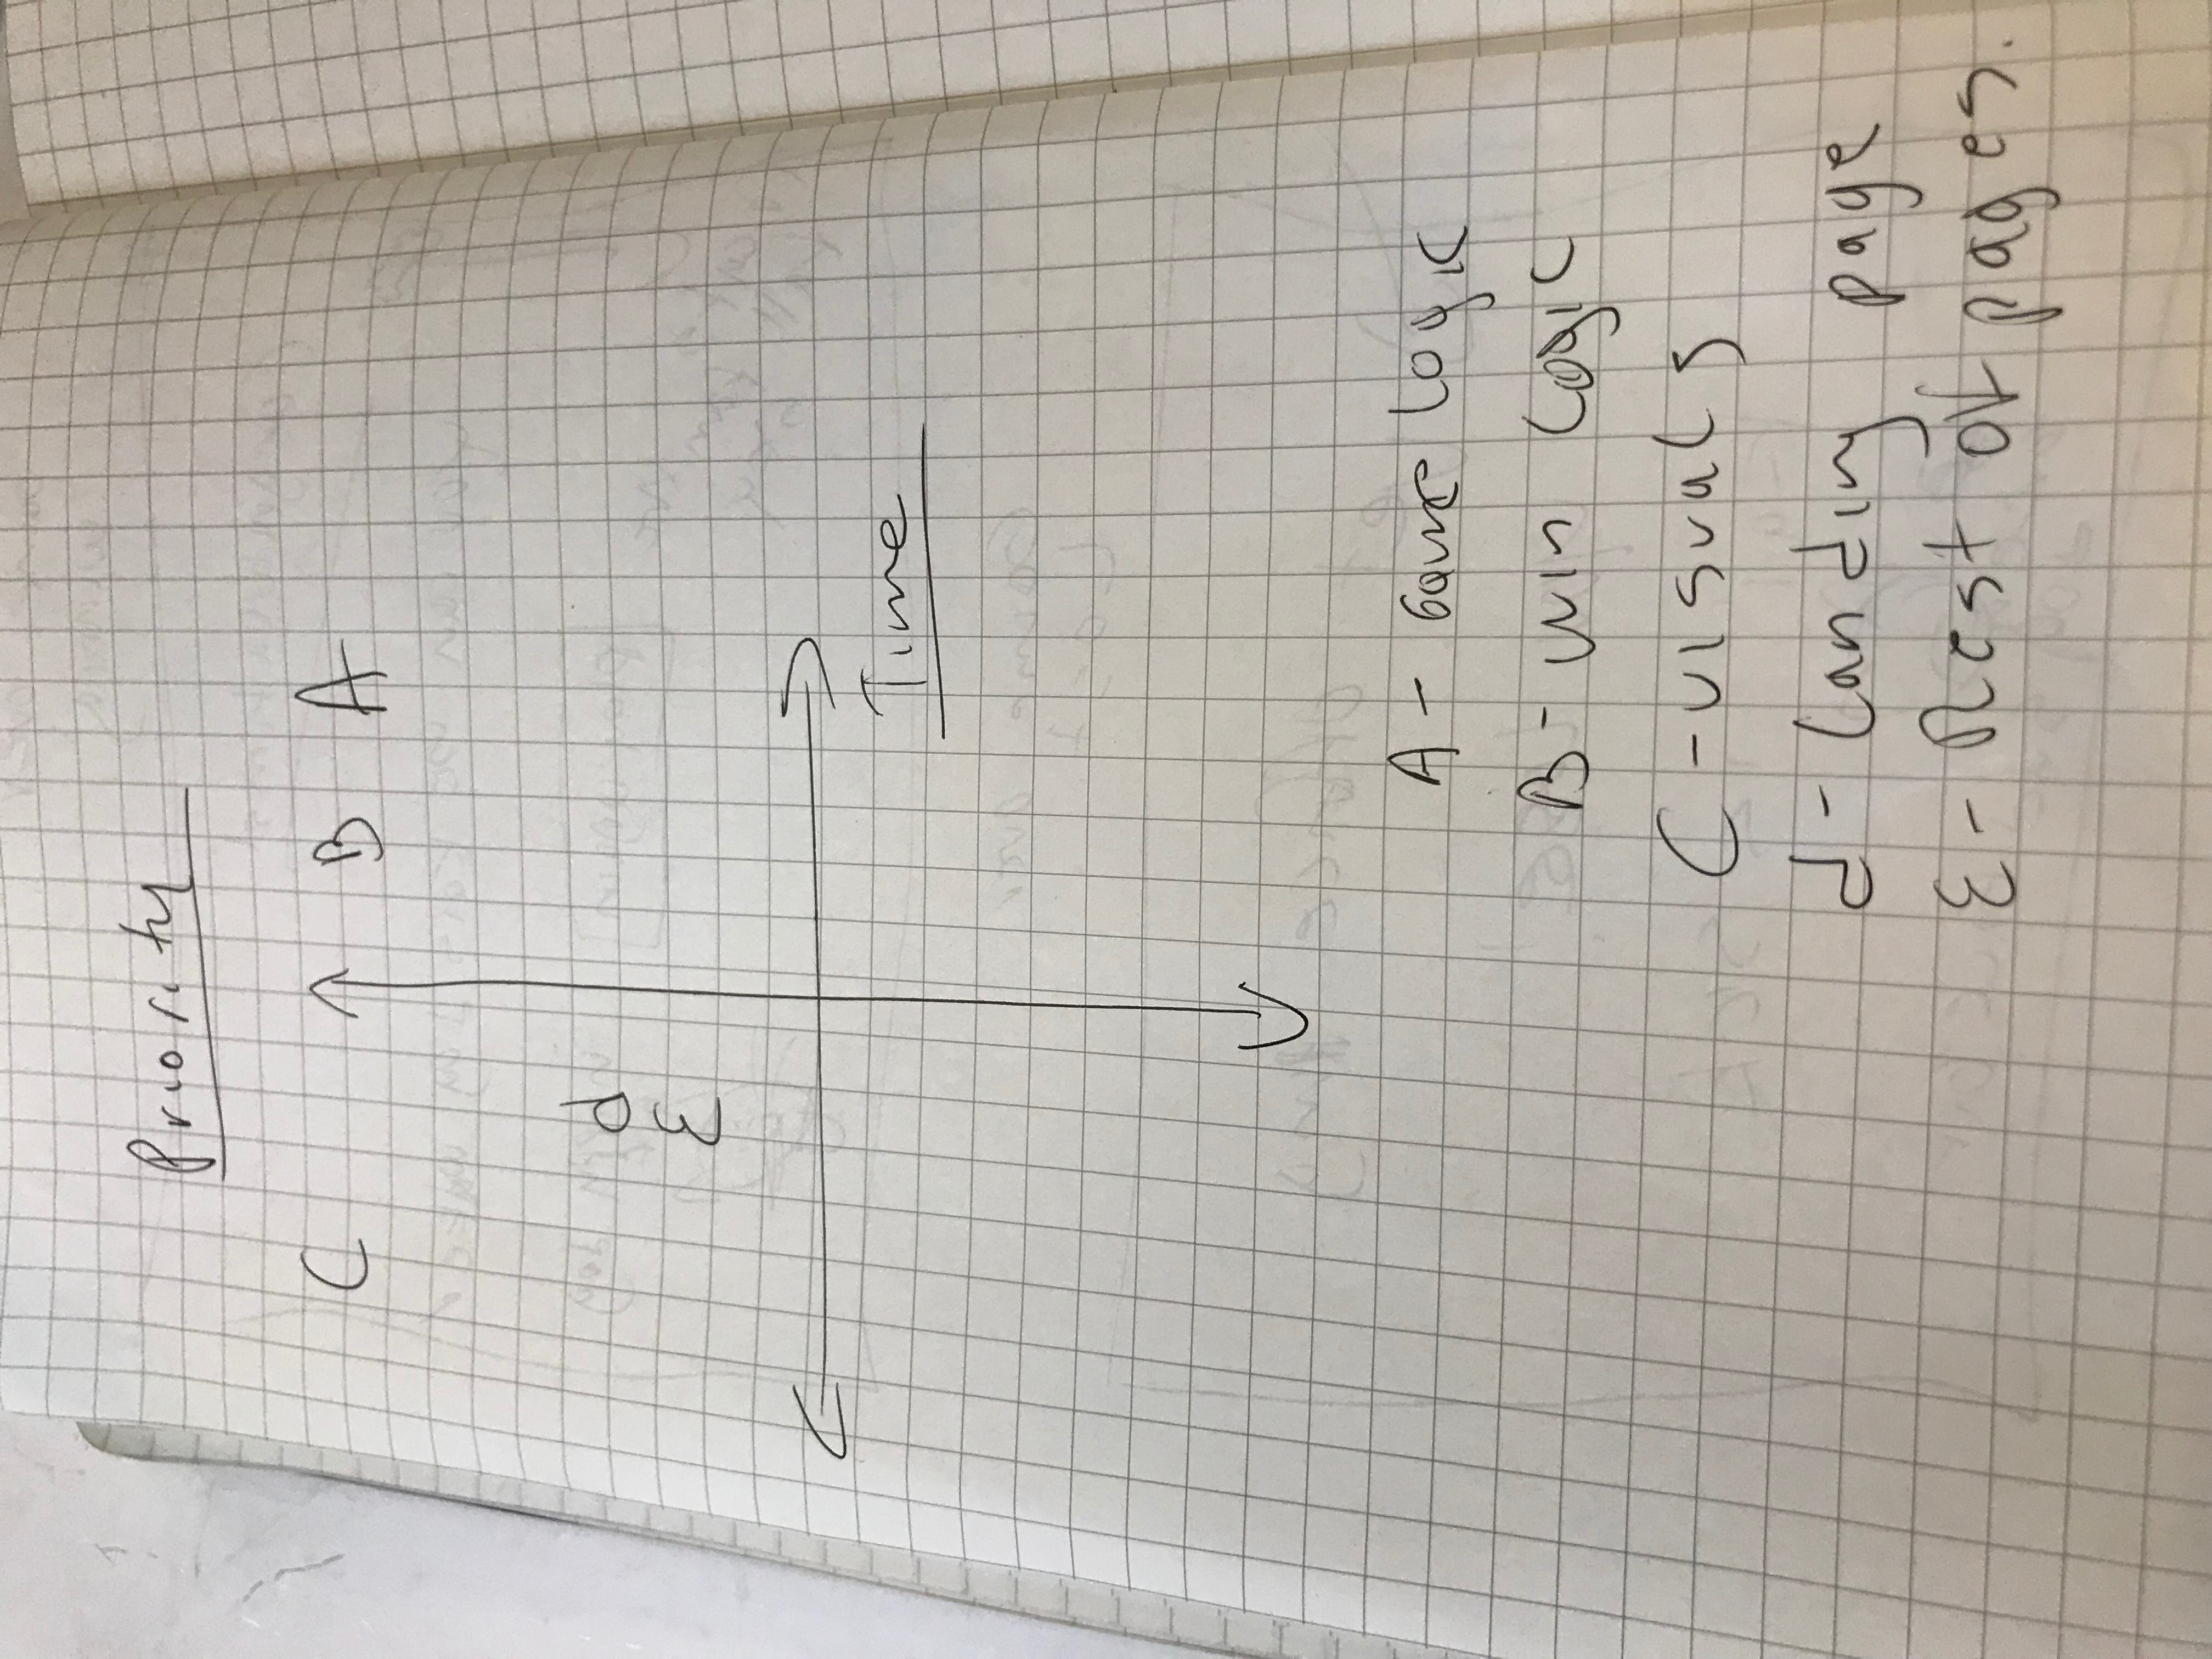 Priority
C B A
d
E
Time
A - Game logic
B - win logic
C - visuals
d - Landing page
E - Rest of pages.